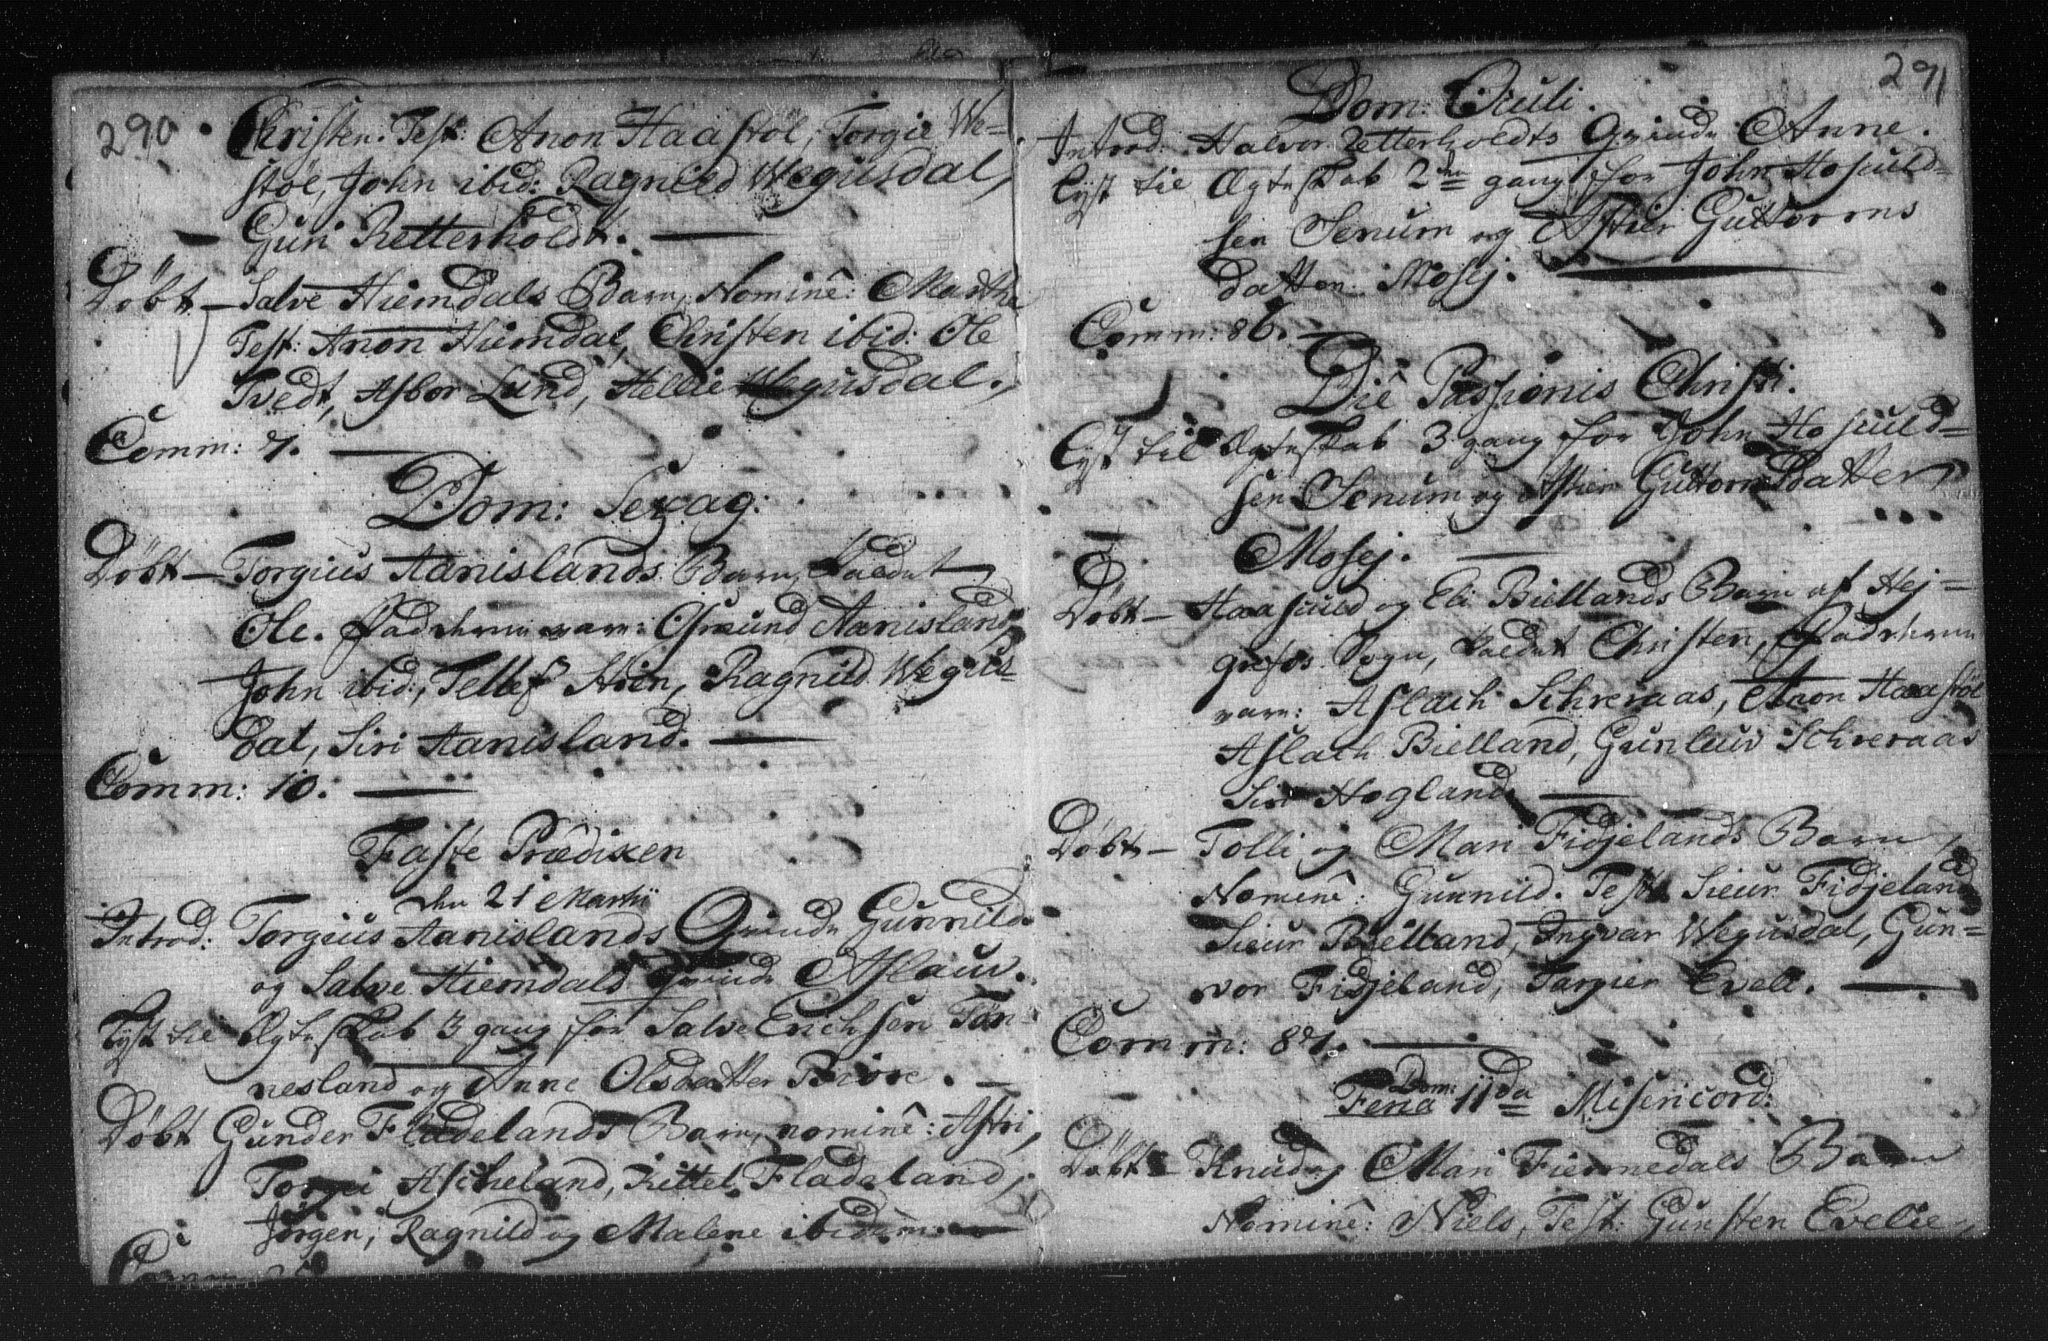 290
Christen. Test: Anon Haastöl, Torgie We-
støl, John ibid: Ragnild Wegusdal,
Guri Retterholdt.
Döbt - Salve Hiemdals Barn, Nominê: Marthe
Test: Anon Hiemdal, Christen ibid: Ole
Tvedt, Asbor Lund, Hellie Wegusdal.
Comm: 7.
Dom: Sexag:
Döbt - Torgius Aanislands Barn, kaldet
Ole. Fadderne vare: Osmund Aanisland
John ibid:, Tellef Hien, Ragnild Wegus-
dal, Siri Aanisland.
Comm: 10.
Faste Prædiken
den 21 Martii
Introd: Torgius Aanislands Qvinde Gunnild
og Salve Hiemdals Qvinde Aslaur.
Lyst til Ægteskab 3 gang for Salve Erichsen Tön-
nesland og Anne Olsdatter Biöre.
Döbt Gunder Fladelands Barn, nominê: Astri,
Torgei Ascheland, Kittel Fladeland,
Jörgen, Ragnild og Malene ibidem.
Comm:
291
Dom: Oculi.
Introd: Halvor Retterholdts Qvinde Anne.
Lyst til Ægteskab 2den gang for John Hosuld-
sen Senum og Astier Guttorms
datter Mosej.
Comm: 86.
Diê Passionis Christi.
Lyst til Ægteskab 3 gang for John Hosuld-
sen Senum og Astier Guttormsdatter
Mosej.
Döbt - Haasuld og Eli Biellands Barn af Hej-
grefos Sogn, kaldet Christen, Fadderne
vare: Aslach Schreraas, Anon Haastöl
Aslach Bielland, Gunluv Schreraas
Siri Hogland.
Döbt - Tolli og Mari Fidjelands Barn,
Nominê: Gunnild. Test: Sieur Fidjeland
Sieur Bielland, Ingvar Wegusdal, Gun-
vor Fidjeland, Targier Evell.
Comm: 87.
Dom:
Feria 11da Misericord:
Döbt - Knud og Mari Fiermedals Barn
Nominê: Niels, Test: Gunsten Evelie,